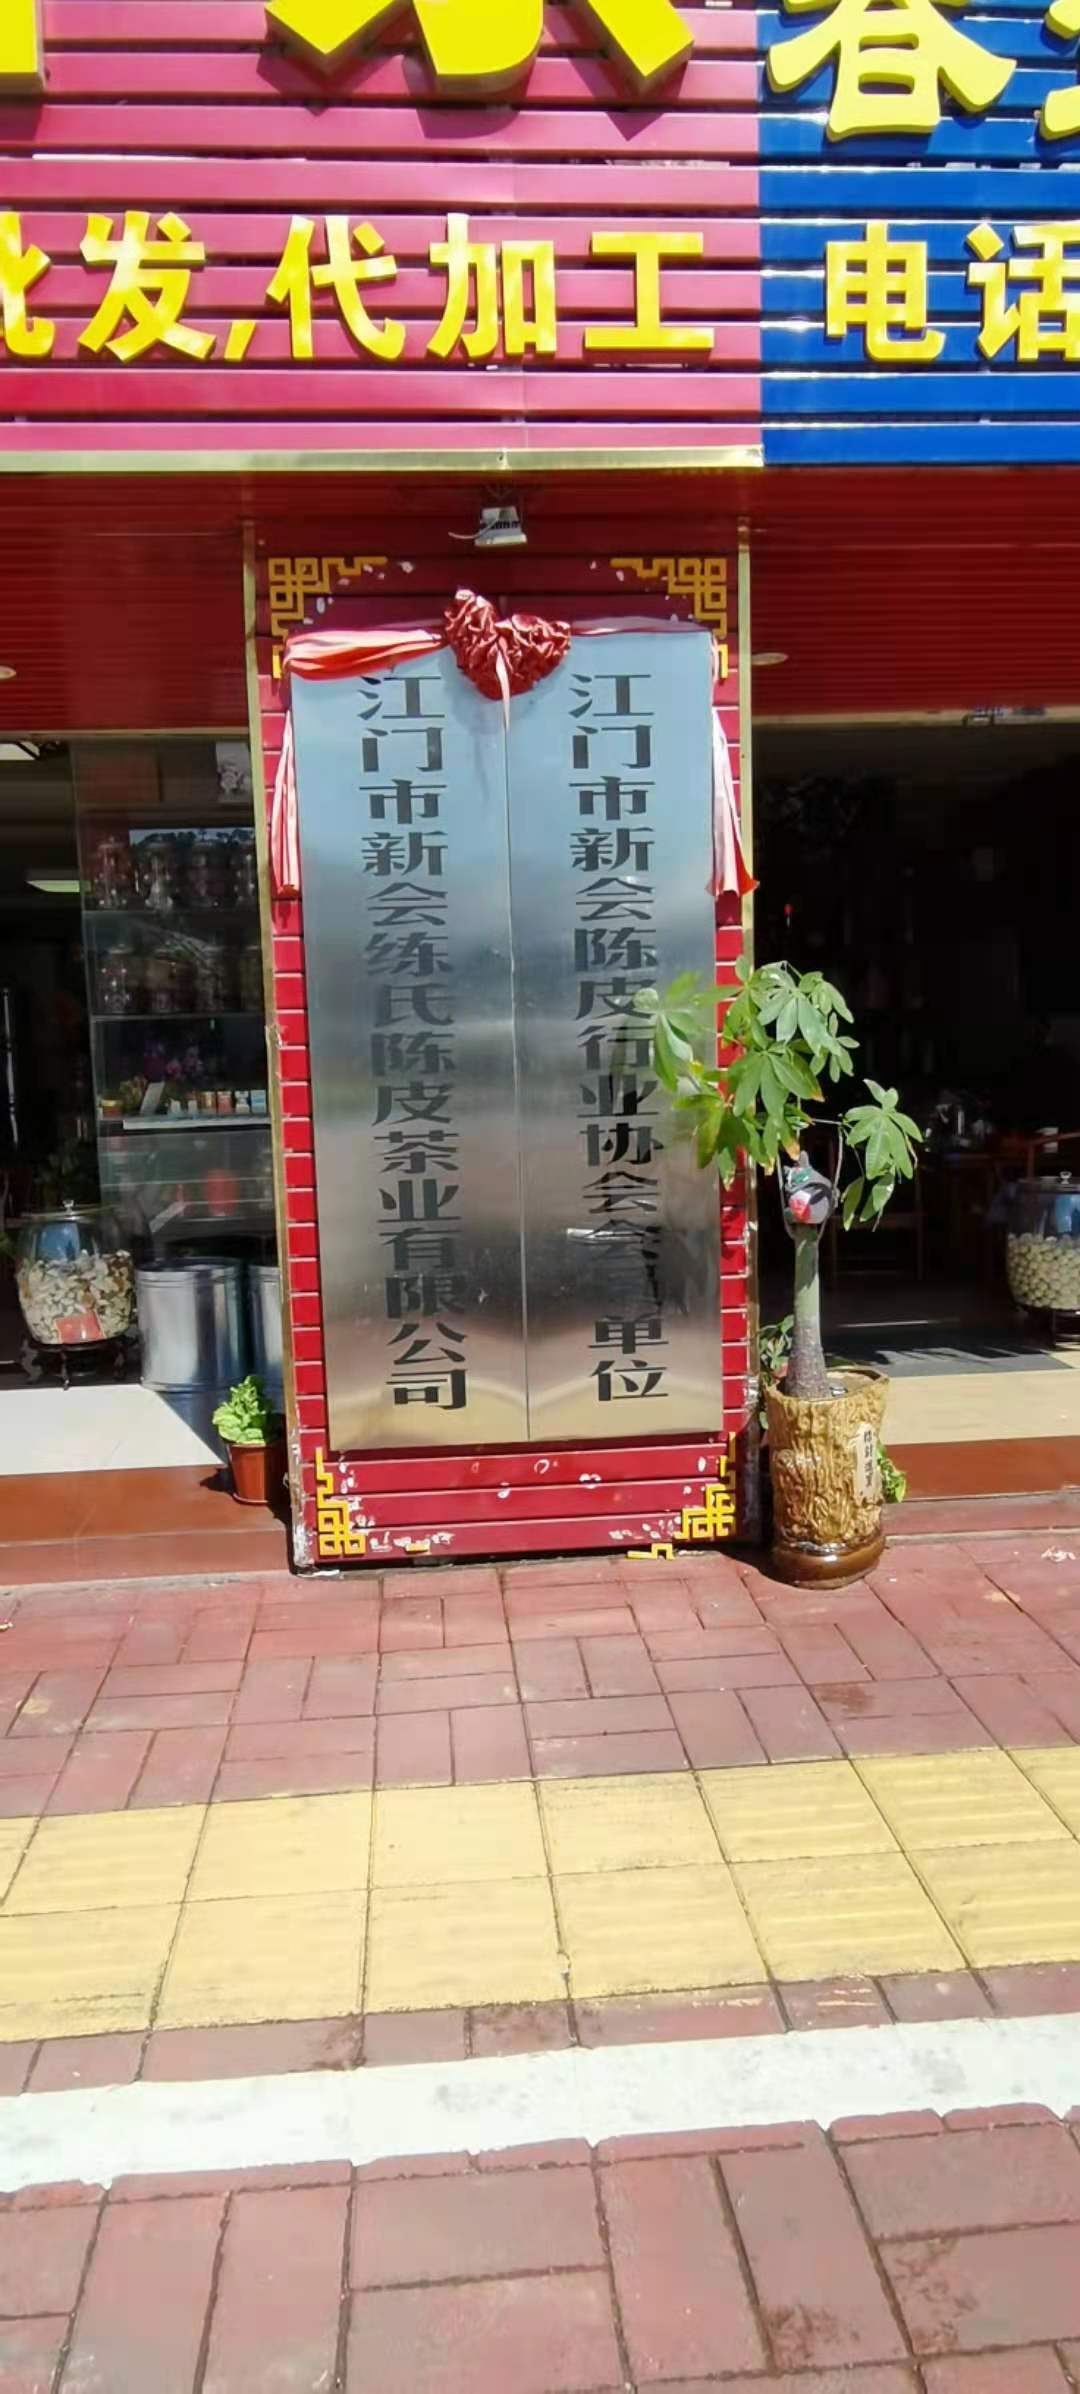 春
批发,代加工 电话
江门市新会陈皮行业协会会员单位
江门市新会练氏陈皮茶业有限公司